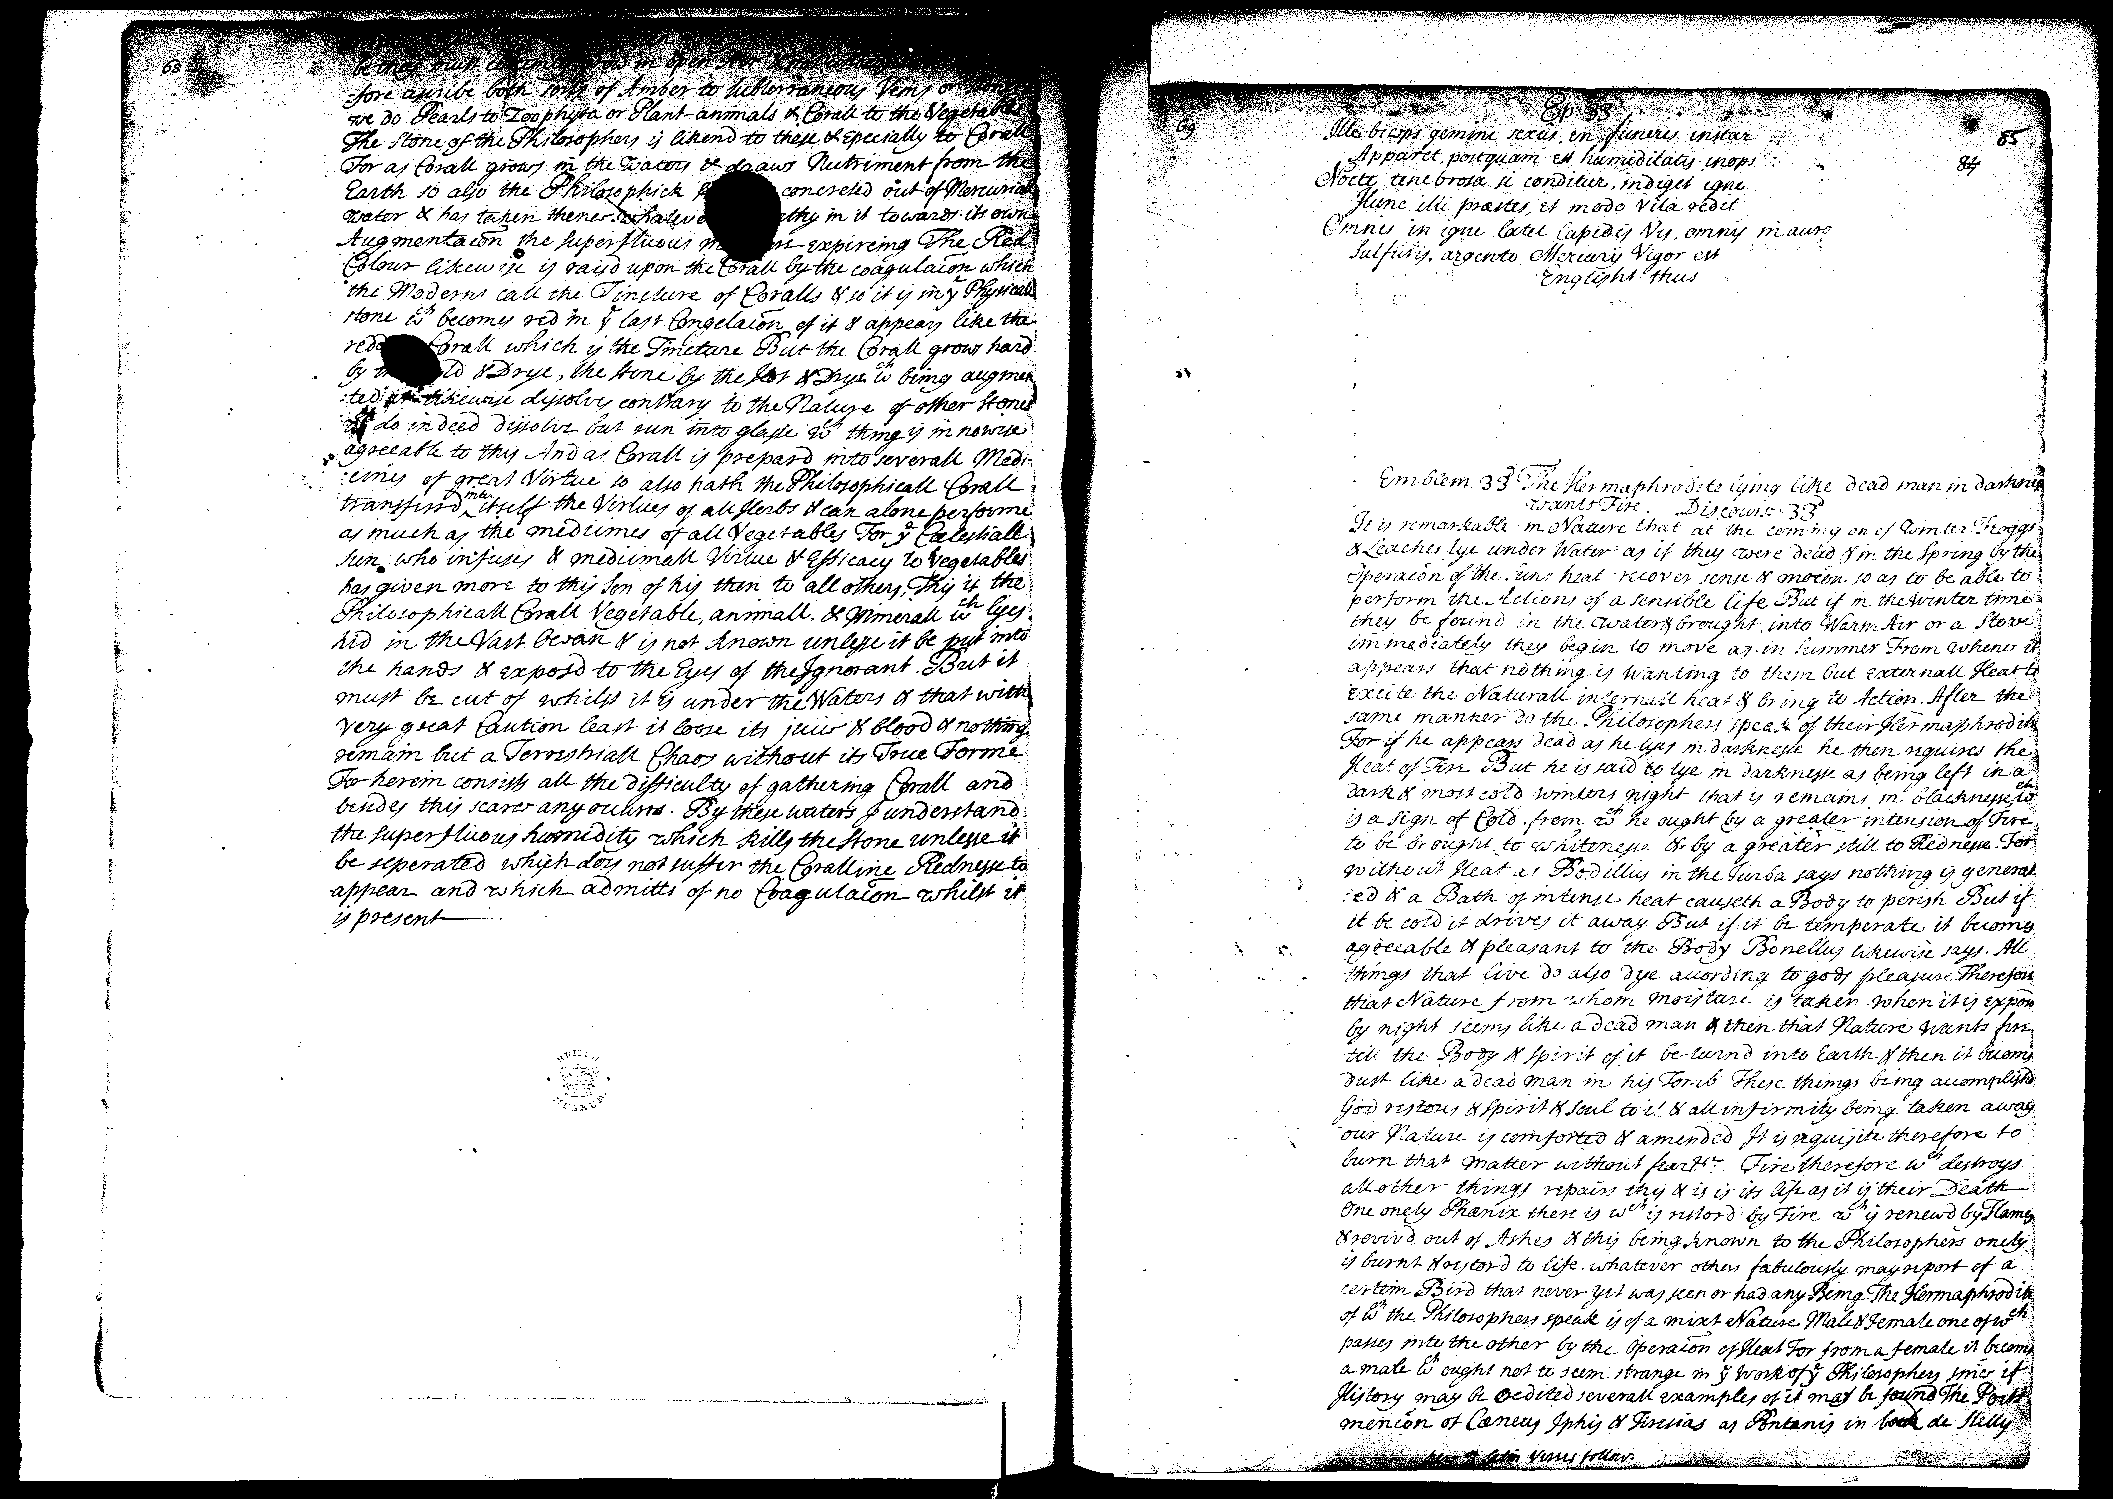 68
fore ascribe both sorts of Amber to subterraneous Veins or
we do Pearls to Zoophyta or Plant-animals & Corall to the Vegetable
The Stone of the Philosophers is likend to these & especially to Corall
For as Corall grows in the Waters & draws Nutriment from the
Earth so also the Philosophick concreted out of Mercurial
water & has taken thence whatever in it towards its own
Augmentacõn the superfluous expireing The Red
Colour likewise is raisd upon the Corall by the coagulacõn which
the Moderns call the Tincture of Coralls & so it is in yͤ Physicall
stone wᶜʰ becomes red in yͤ last Congelacõn of it & appears like the
Corall which is the Tincture But the Corall grows hard
by & Drye, the stone by the Hot & Drye wᶜʰ being augmen
:ted likewise disolves contrary to the Nature of other stones
do indeed dissolve but run into glasse wᶜʰ thing is in nowise
agreeable to this And as Corall is prepard into severall Medi:
:cines of great Virtue so also hath the Philosophicall Corall
transfusd into itself the Virtues of all Herbs & can alone performe
as much as the medicines of all Vegetables For yͤ Cœlestiall
sun who infuses & medicinall Virtue & Efficacy to Vegetables
has given more to this Son of his then to all others, This is the
Philosophicall Corall Vegetable, animall & Minerall wᶜʰ lyes
hid in the Vast Ocean & is not known unlesse it be put into
the hands & exposd to the Eyes of the Ignorant But it
must be cut of whilst it is under the Waters & that with
very great Caution least it loose its juice & blood & nothing
remain but a Terrestriall Chaos without its True Forme
For herein consists all the difficulty of gathering Corall and
besides this scarce any occurrs. By these waters I understand
the superfluous humidity which kills the stone unlesse it
be seperated which does not suffer the Coralline Rednesse to
appear and which admitts of no Coagulacõn whilst it
is present
69
Ep: 33
85
84
Ille biceps gemini sexus, en funeris instar
Apparet, postquam est humiditatis inops
Nocte tenebrosa si conditur, indiget igne
Hunc illi præstes, et modo vita redit
Omnis in igne latet lapidis Vis, omnis in auro
Sulfuris, argento Mercurij Vigor est
Englisht thus
Emblem 33 The Hermaphrodite lying like dead man in darknes
wants Fire. Discourse 33
It is remarkable in Nature that at the coming on of Winter Froggs
& Leaches lye under Water as if they were dead & in the Spring by the
operacõn of the suns heat recover sense & mocõn so as to be able to
perform the Actions of a sensible life But if in the winter time
they be found in the water & brought into Warm Air or a Stove
immediately they begin to move as in summer From whence it
appears that nothing is Wanting to them but externall Heat to
excite the Naturall internall heat & bring to Action. After the
same manner do the Philosophers speak of their Hermaphrodite
For if he appears dead as he lyes in darknesse he then requires the
Heat of Fire But he is said to lye in darkness as being left in a
dark & most cold winters night that is remains in blacknesse wᶜʰ
is a sign of Cold, from wᶜʰ he ought by a greater intension of Fire
to be brought to whiteness & by a greater still to Redness For
without Heat as Bodillus in the Turba says nothing is generat
:ed & a Bath of intense heat causeth a Body to perish But if
it be cold it drives it away But if it be temperate it becomes
agreeable & pleasant to the Body Bonellus likewise says. All
things that live do also dye according to gods pleasure Therefore
that Nature from whom moisture is taken when it is exposd
by night seems like a dead man & then that Nature wants fire
till the Body & spirit of it be turnd into Earth & then it becoms
dust like a dead man in his Tomb These things being accomplishd
God restores & spirit & soul to it & all infirmity being taken away
our Nature is comforted & amended It is requisite therefore to
burn that matter without fear &c. Fire therefore wᶜʰ destroys
all other things repairs this & is is its life as it is their Death
One onely Phœnix there is wᶜʰ is restord by Fire wᶜʰ is renewd by Flames
& revivd out of Ashes & this being known to the Philosophers onely
is burnt & restord to life whatever others fabulously may report of a
certein Bird that never yet was seen or had any Being The Hermaphrodite
of wᶜʰ the Philosophers speak is of a mixt Nature Male & Female one of wᶜʰ
passes into the other by the operacõn of Heat For from a female it becoms
a male wᶜʰ ought not to seem strange in yͤ work of yͤ Philosophers since if
History may be credited severall examples of it may be found The Poets
mencõn of Cæneus Iphis & Tiresias as Pontanus in book de Stellis